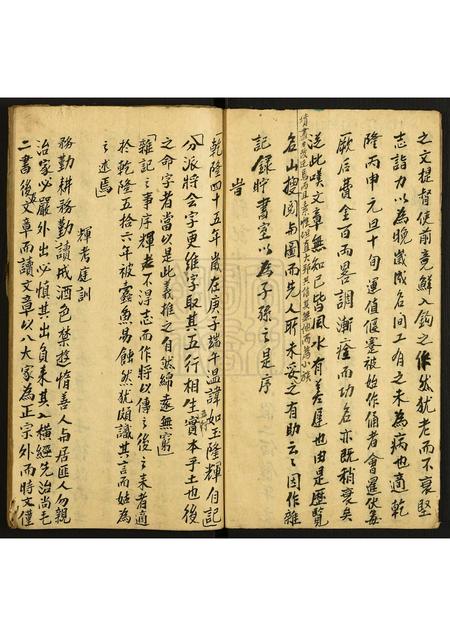 之文提督使前竟鮮入鈎之作然犹老而不衰堅
志詣力以為晚歲成名间工有之未為病也適乾
隆丙申元旦十旬運值偃蹇被始作俑者會暹伏毒
厥后費金百両畧調漸痊而功名亦既稍衰矣
送此嘆文章無知已皆風水有差遅也由是歴覧
名山搜図与圖而先人所未妥之有助云云因作雜
記録貯書室以為子孫之是序
昔
乾隆四十五年歲在庚子端午温諱如玉隆輝自記
分派將会字更維字取其五行相生實本乎土也後
之命字者當以是此義推之自然綿遠無窮
雜記之事序輝老不浮志而作將以傳之後之未者適
於乾隆五拾六年被蠹魚易蝕然犹頗識其言而姑為
之述焉
輝考庭訓
務勤耕務勤讀戒酒色禁遊惰善人与居匪人勿親
治家必嚴外出必慎其出負耒其入橫經先治尚毛
二書後及文章而讀文章以八大家為正宗外而時文僅